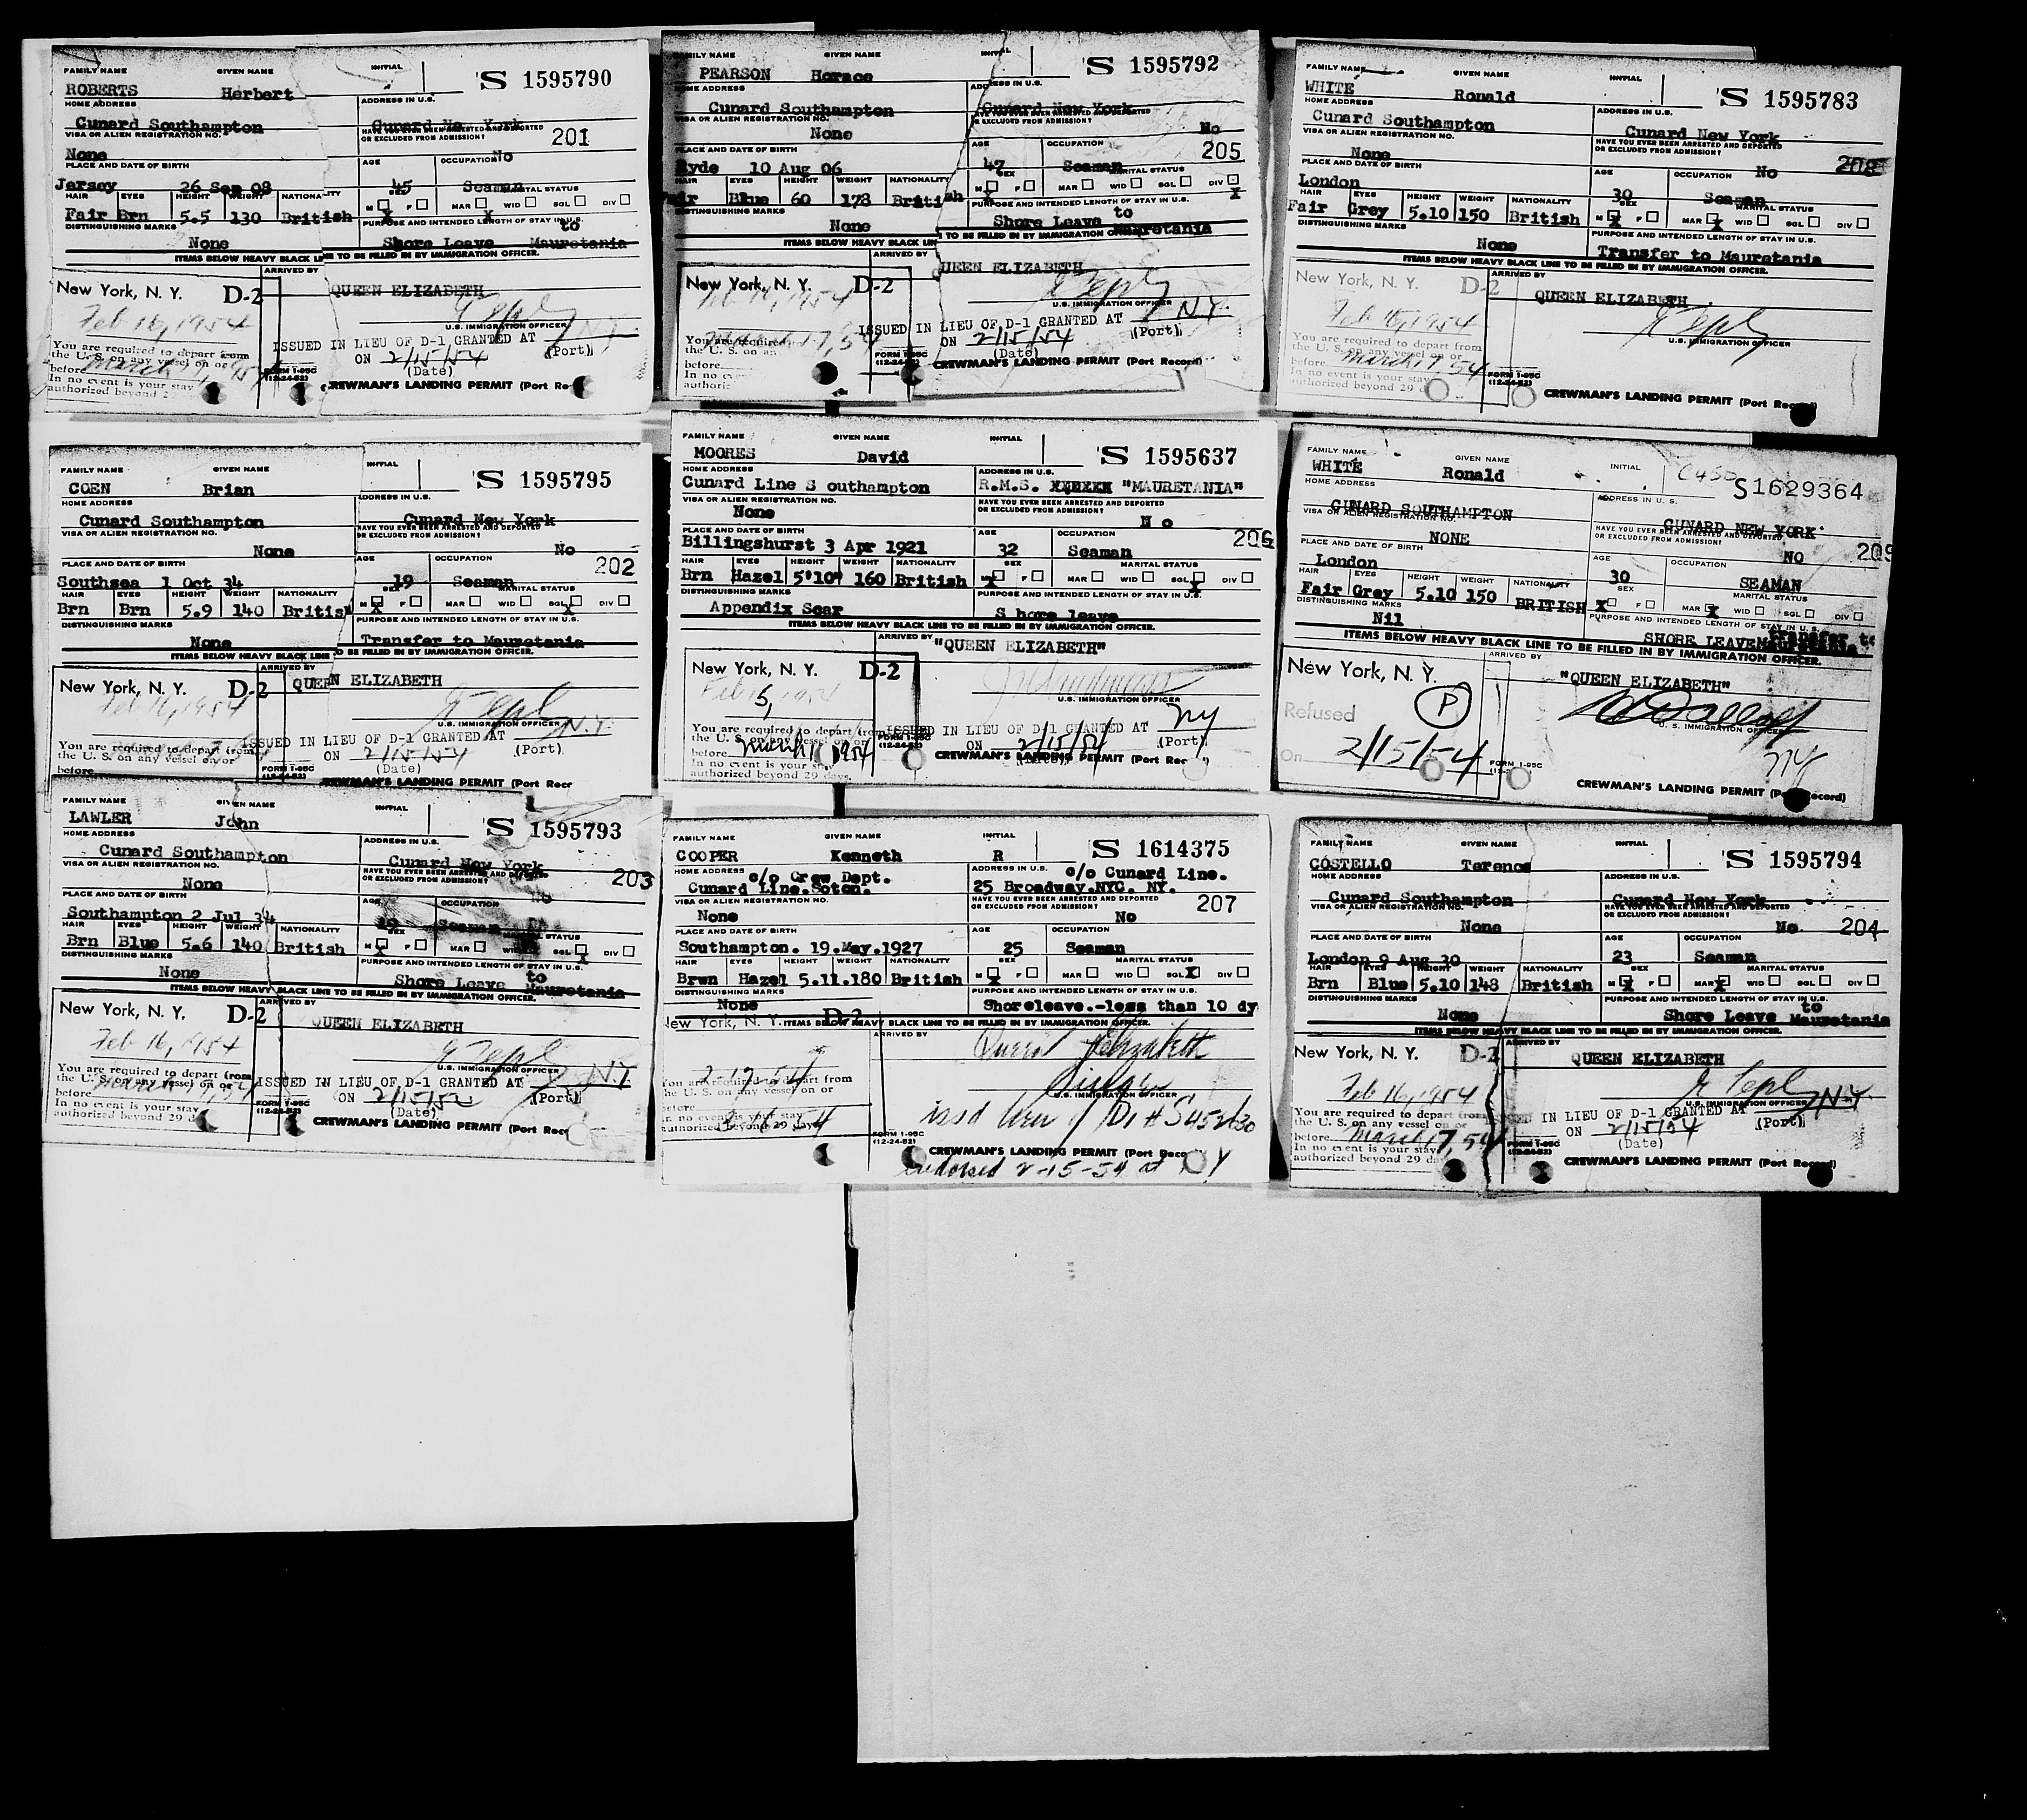 FAMILY NAME GIVEN NAME INITIAL S 1595790
ROBERTS Herbert
HOME ADDRESS ADDRESS IN U.S.
Cunard Southampton Cunard Ne York
VISA OR ALIEN REGISTRATION NO. HAVE YOU EVER BEEN ARRESTED AND DEPORTED OR EXCLUDED FROM ADMISSION? 201
None No
PLACE AND DATE OF BIRTH AGE OCCUPATION
Jersey 26 Sep 08 45 Seaman
HAIR EYES HEIGHT WEIGHT NATIONALITY SEX MARITAL STATUS
Fair Brn 5.5 130 British M X F MAR X WID SGL DIV
DISTINGUISHING MARKS PURPOSE AND INTENDED LENGTH OF STAY IN U.S.
None Shore Leave to Mauretania
ITEMS BELOW HEAVY BLACK LINE TO BE FILLED IN BY IMMIGRATION OFFICER.
New York, N. Y. D-2 ARRIVED BY
QUEEN ELIZABETH
Feb 16, 1954
U.S. IMMIGRATION OFFICER N.Y.
ISSUED IN LIEU OF D-1 GRANTED AT (Port)
ON 2/15/54 (Date)
You are required to depart from
the U. S. on any vessel on or
before March
In no event is your stay
authorized beyond 29
FORM I-95C (12-24-52)
CREWMAN'S LANDING PERMIT (Port Re
FAMILY NAME GIVEN NAME INITIAL S 1595792
PEARSON Horace
HOME ADDRESS ADDRESS IN U.S.
Cunard Southampton Cunard New York
VISA OR ALIEN REGISTRATION NO. HAVE YOU EVER BEEN ARRESTED AND DEPORTED OR EXCLUDED FROM ADMISSION?
None No
PLACE AND DATE OF BIRTH AGE OCCUPATION 205
Ryde 10 Aug 06 47 Seaman
HAIR EYES HEIGHT WEIGHT NATIONALITY SEX MARITAL STATUS
Fair Blue 60 178 British M X F MAR WID SGL DIV X
DISTINGUISHING MARKS PURPOSE AND INTENDED LENGTH OF STAY IN U.S.
None Shore Leave to Mauretania
ITEMS BELOW HEAVY BLACK LIN TO BE FILLED IN BY IMMIGRATION OFFICER.
New York, N. Y. D-2 ARRIVED BY
QUEEN ELIZABETH
U.S. IMMIGRATION OFFICER N.Y.
ISSUED IN LIEU OF D-1 GRANTED AT (Port)
ON 2/15/54 (Date)
You are required
the U. S. on an
before
In no ev
authoriz
FORM I-95C (12-24-52)
CREWMAN'S LANDING PERMIT (Port Record)
FAMILY NAME GIVEN NAME INITIAL S 1595783
WHITE Ronald
HOME ADDRESS ADDRESS IN U.S.
Cunard Southampton Cunard New York
VISA OR ALIEN REGISTRATION NO. HAVE YOU EVER BEEN ARRESTED AND DEPORTED OR EXCLUDED FROM ADMISSION?
None No 208
PLACE AND DATE OF BIRTH AGE OCCUPATION
London 30 Seaman
HAIR EYES HEIGHT WEIGHT NATIONALITY SEX MARITAL STATUS
Fair Grey 5.10 150 British M X F MAR X WID SGL DIV
DISTINGUISHING MARKS PURPOSE AND INTENDED LENGTH OF STAY IN U.S.
None Transfer to Mauretania
ITEMS BELOW HEAVY BLACK LINE TO BE FILLED IN BY IMMIGRATION OFFICER.
New York, N. Y. D-2 ARRIVED BY
QUEEN ELIZABETH
Feb 16, 1954
U.S. IMMIGRATION OFFICER
You are required to depart from
the U. S. on any vessel on or
before March 17, 54
In no event is your stay
authorized beyond 29
FORM I-95C (12-24-52)
CREWMAN'S LANDING PERMIT (Port Record)
FAMILY NAME GIVEN NAME INITIAL S 1595795
COEN Brian
HOME ADDRESS ADDRESS IN U.S.
Cunard Southampton Cunard New York
VISA OR ALIEN REGISTRATION NO. HAVE YOU EVER BEEN ARRESTED AND DEPORTED OR EXCLUDED FROM ADMISSION?
None No
PLACE AND DATE OF BIRTH AGE OCCUPATION 202
Southsea 1 Oct 34 19 Seaman
HAIR EYES HEIGHT WEIGHT NATIONALITY SEX MARITAL STATUS
Brn Brn 5.9 140 British M X F MAR WID SGL X DIV
DISTINGUISHING MARKS PURPOSE AND INTENDED LENGTH OF STAY IN U.S.
None Transfer to Mauretania
ITEMS BELOW HEAVY BLACK LINE TO BE FILLED IN BY IMMIGRATION OFFICER.
New York, N. Y. D-2 ARRIVED BY
QUEEN ELIZABETH
Feb 16, 1954
U.S. IMMIGRATION OFFICER N.Y.
ISSUED IN LIEU OF D-1 GRANTED AT (Port)
ON 2/15/54 (Date)
You are required to depart from
the U. S. on any vessel on or
before
FORM I-95C (12-24-52)
CREWMAN'S LANDING PERMIT (Port Recr
FAMILY NAME GIVEN NAME INITIAL S 1595637
MOORES David
HOME ADDRESS ADDRESS IN U.S.
Cunard Line S outhampton R.M.S. "MAURETANIA"
VISA OR ALIEN REGISTRATION NO. HAVE YOU EVER BEEN ARRESTED AND DEPORTED OR EXCLUDED FROM ADMISSION?
None N o
PLACE AND DATE OF BIRTH AGE OCCUPATION 206
Billingshurst 3 Apr 1921 32 Seaman
HAIR EYES HEIGHT WEIGHT NATIONALITY SEX MARITAL STATUS
Brn Hazel 5'10" 160 British M X F MAR WID SGL X DIV
DISTINGUISHING MARKS PURPOSE AND INTENDED LENGTH OF STAY IN U.S.
Appendix Scar S hore leave
ITEMS BELOW HEAVY BLACK LINE TO BE FILLED IN BY IMMIGRATION OFFICER.
ARRIVED BY "QUEEN ELIZABETH"
New York, N. Y. D-2
U.S. IMMIGRATION OFFICER
ISSUED IN LIEU OF D-1 GRANTED AT NY (Port)
ON 2/15/54
You are required to depart from
the U. S. on any vessel on or
before March 1954
In no event is your stay
authorized beyond 29 days.
FORM I-95C (12-24-52)
CREWMAN'S LANDING PERMIT (Port Rec
FAMILY NAME GIVEN NAME INITIAL C450 S1629364
WHITE Ronald
HOME ADDRESS ADDRESS IN U. S.
CUNARD SOUTHAMPTON CUNARD NEW YORK
VISA OR ALIEN REGISTRATION NO. HAVE YOU EVER BEEN ARRESTED AND DEPORTED OR EXCLUDED FROM ADMISSION?
NONE NO 209
PLACE AND DATE OF BIRTH AGE OCCUPATION
London 30 SEAMAN
HAIR EYES HEIGHT WEIGHT NATIONALITY SEX MARITAL STATUS
Fair Grey 5.10 150 BRITISH X F MAR X WID SGL DIV
DISTINGUISHING MARKS PURPOSE AND INTENDED LENGTH OF STAY IN U. S.
Nil SHORE LEAVE Transfer to Mauretania
ITEMS BELOW HEAVY BLACK LINE TO BE FILLED IN BY IMMIGRATION OFFICER.
New York, N. Y. ARRIVED BY
"QUEEN ELIZABETH"
P
Refused
U. S. IMMIGRATION OFFICER
On 2/15/54 NY
FORM I-95C
CREWMAN'S LANDING PERMIT (Port Record)
FAMILY NAME GIVEN NAME INITIAL S 1595793
LAWLER John
HOME ADDRESS ADDRESS IN U.S.
Cunard Southampton Cunard New York
VISA OR ALIEN REGISTRATION NO. HAVE YOU EVER BEEN ARRESTED AND DEPORTED OR EXCLUDED FROM ADMISSION?
None No 203
PLACE AND DATE OF BIRTH AGE OCCUPATION
Southampton 2 Jul 34 19 Seaman
HAIR EYES HEIGHT WEIGHT NATIONALITY SEX MARITAL STATUS
Brn Blue 5.6 140 British M X F MAR WID SGL X DIV
DISTINGUISHING MARKS PURPOSE AND INTENDED LENGTH OF STAY IN U.S.
None Shore Leave to Mauretania
ITEMS BELOW HEAVY BLACK LINE TO BE FILLED IN BY IMMIGRATION OFFICER.
New York, N. Y. D-2 ARRIVED BY
QUEEN ELIZABETH
Feb 16, 1954
U.S. IMMIGRATION OFFICER N.Y
ISSUED IN LIEU OF D-1 GRANTED AT (Port)
ON 2/15/54 (Date)
You are required to depart from
the U. S. on any vessel on or
before
In no event is your stay
authorized beyond 29 d
FORM I-95C (12-24-52)
CREWMAN'S LANDING PERMIT (Port Rec
FAMILY NAME GIVEN NAME INITIAL S 1614375
COOPER Kenneth R
HOME ADDRESS ADDRESS IN U.S.
c/o Crew Dept. c/o Cunard Line.
Cunard Line.Soton. 25 Broadway.NYC. NY.
VISA OR ALIEN REGISTRATION NO. HAVE YOU EVER BEEN ARRESTED AND DEPORTED OR EXCLUDED FROM ADMISSION? 207
None No
PLACE AND DATE OF BIRTH AGE OCCUPATION
Southampton. 19.May.1927 25 Seaman
HAIR EYES HEIGHT WEIGHT NATIONALITY SEX MARITAL STATUS
Brwn Hazel 5.11.180 British M X F MAR WID SGL X DIV
DISTINGUISHING MARKS PURPOSE AND INTENDED LENGTH OF STAY IN U.S.
None Shoreleave.-less than 10 dy
New York, N. Y. D-2 ITEMS BELOW HEAVY BLACK LINE TO BE FILLED IN BY IMMIGRATION OFFICER.
ARRIVED BY
Queen Elizabeth
U.S. IMMIGRATION OFFICER
You are required to depart from
the U. S. on any vessel on or
before
In no event is your stay
authorized beyond 29 days
FORM I-95C (12-24-52)
CREWMAN'S LANDING PERMIT (Port Reco
endorsed 2-15-54 at N Y
FAMILY NAME GIVEN NAME INITIAL S 1595794
COSTELLO Terence
HOME ADDRESS ADDRESS IN U.S.
Cunard Southampton Cunard New York
VISA OR ALIEN REGISTRATION NO. HAVE YOU EVER BEEN ARRESTED AND DEPORTED OR EXCLUDED FROM ADMISSION?
None No 204
PLACE AND DATE OF BIRTH AGE OCCUPATION
London 9 Aug 30 23 Seaman
HAIR EYES HEIGHT WEIGHT NATIONALITY SEX MARITAL STATUS
Brn Blue 5.10 148 British M X F MAR X WID SGL DIV
DISTINGUISHING MARKS PURPOSE AND INTENDED LENGTH OF STAY IN U.S.
None Shore Leave to Mauretania
ITEMS BELOW HEAVY BLACK LINE TO BE FILLED IN BY IMMIGRATION OFFICER.
New York, N. Y. D-2 ARRIVED BY
QUEEN ELIZABETH
Feb 16, 1954
U.S. IMMIGRATION OFFICER N.Y.
IN LIEU OF D-1 GRANTED AT (Port)
ON 2/15/54 (Date)
You are required to depart from
the U. S. on any vessel on or
before March 17, 54
In no event is your stay
authorized beyond 29 da
FORM I-95C (12-24-52)
CREWMAN'S LANDING PERMIT (Port Record)